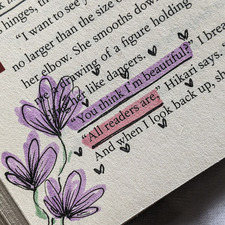 hinges, th
"I want to see y
no larger than the size o
her elbow. She smooths dow
drawing of a figure holding
her like dancers.
"You think I'm beautiful?" I brea
"All readers are," Hikari says. "
And when I look back up, sh